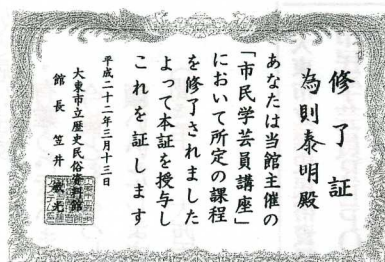 修了証
為則泰明殿
あなたは当館主催の
「市民学芸員講座」
において所定の課程
を修了されました
よって本証を授与し
これを証します
平成二十二年三月十三日
大東市立歴史民俗資料館
館長 笠井